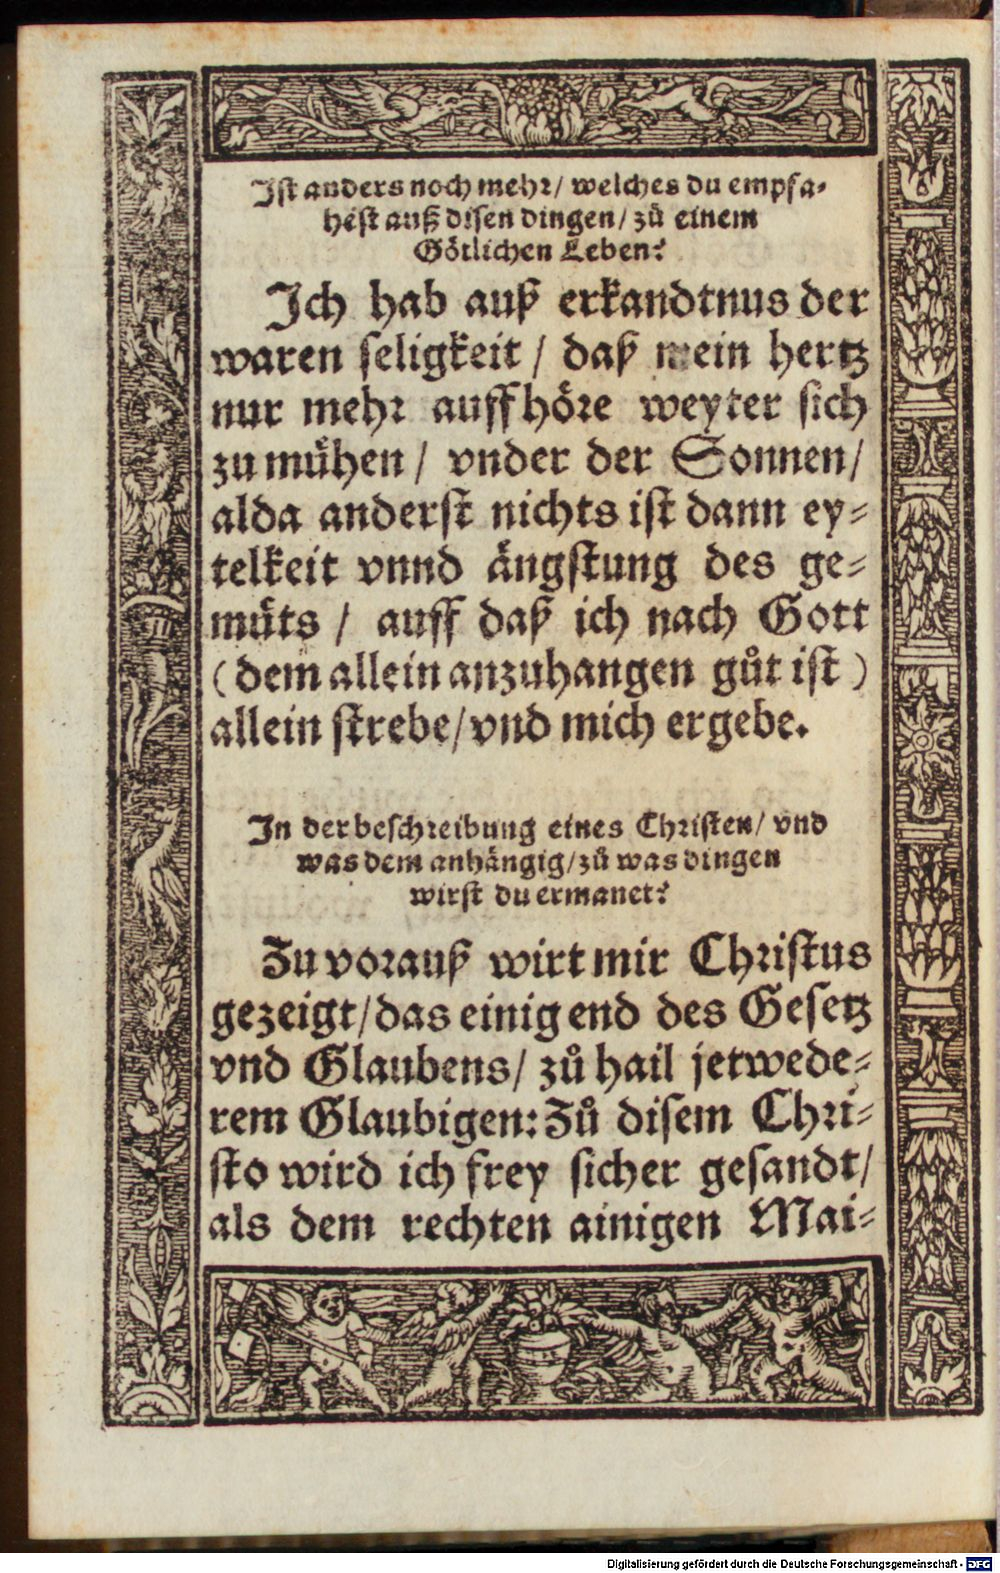 Ist anders noch mehr/ welches du empfa-
hest auß disen dingen/ zů einem
Götlichen Leben?
Ich hab auß erkandtnus der
waren seligkeit / daß mein hertz
nur mehr auffhöre weyter sich
zu mühen / vnder der Sonnen/
alda anderst nichts ist dann ey-
telkeit vnnd ängstung des ge-
müts / auff daß ich nach Gott
(dem allein anzuhangen gůt ist)
allein strebe/ vnd mich ergebe.
In der beschreibung eines Christen/ vnd
was dem anhängig/ zů was dingen
wirst du ermanet?
Zu vorauß wirt mir Christus
gezeigt/ das einig end des Gesetz
vnd Glaubens/ zů hail jetwede-
rem Glaubigen: Zů disem Chri-
sto wird ich frey sicher gesandt/
als dem rechten ainigen Mai-
Digitalisierung gefördert durch die Deutsche Forschungsgemeinschaft - DFG